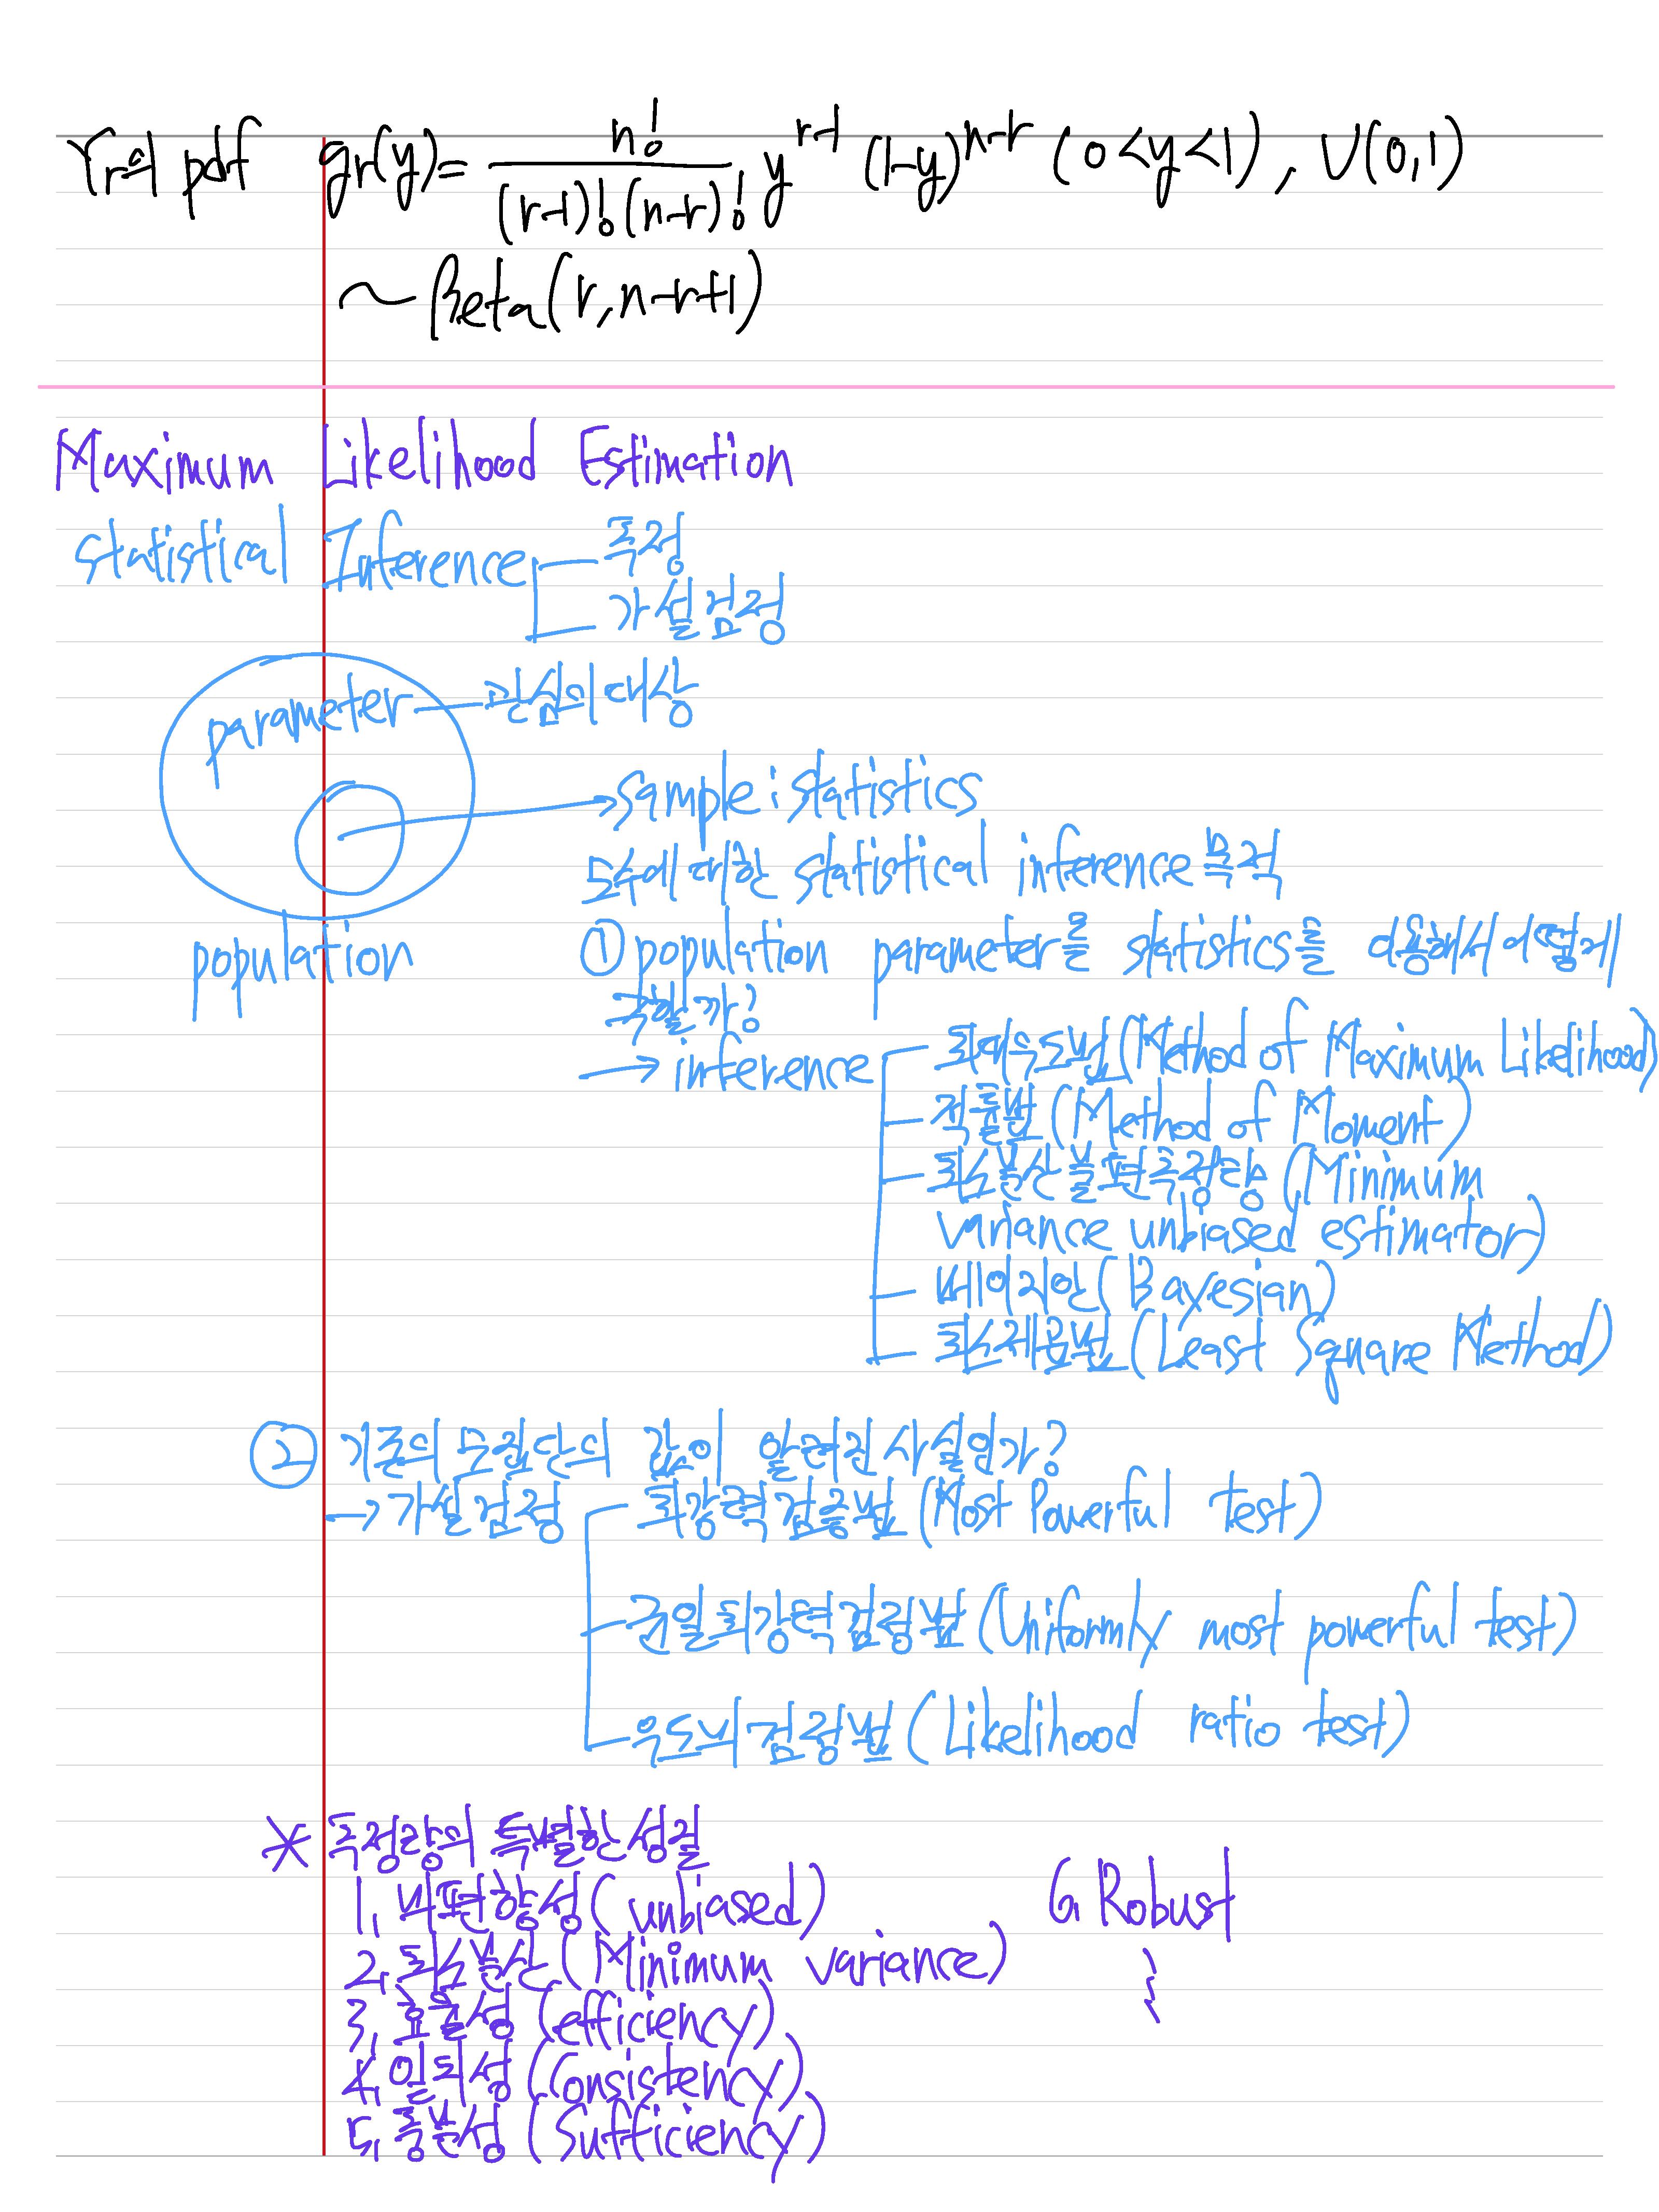 Yr의 pdf gr(y)= n! / (r-1)!(n-r)! y^{r-1} (1-y)^{n-r} (0<y<1), U(0,1)
~ Beta(r, n-r+1)
Maximum Likelihood Estimation
Statistical Inference
추정
가설검정
parameter
관심의 대상
Sample : Statistics
모수에 대한 Statistical inference 목적
population
① population parameter를 statistics를 이용해서 어떻게
구할까?
→ inference
최대우도법 (Method of Maximum Likelihood)
적률법 (Method of Moment)
최소분산불편추정량 (Minimum
variance unbiased estimator)
베이지안 (Bayesian)
최소제곱법 (Least Square Method)
② 기존의 모집단의 값이 알려진 사실인가?
→ 가설검정
최강력검증법 (Most Powerful test)
균일최강력검정법 (Uniformly most powerful test)
우도비검정법 (Likelihood ratio test)
* 추정량의 특별한 성질
1. 비편향성 (unbiased)
2. 최소분산 (Minimum variance)
3. 효율성 (efficiency)
4. 일치성 (Consistency)
5. 충분성 (Sufficiency)
6. Robust